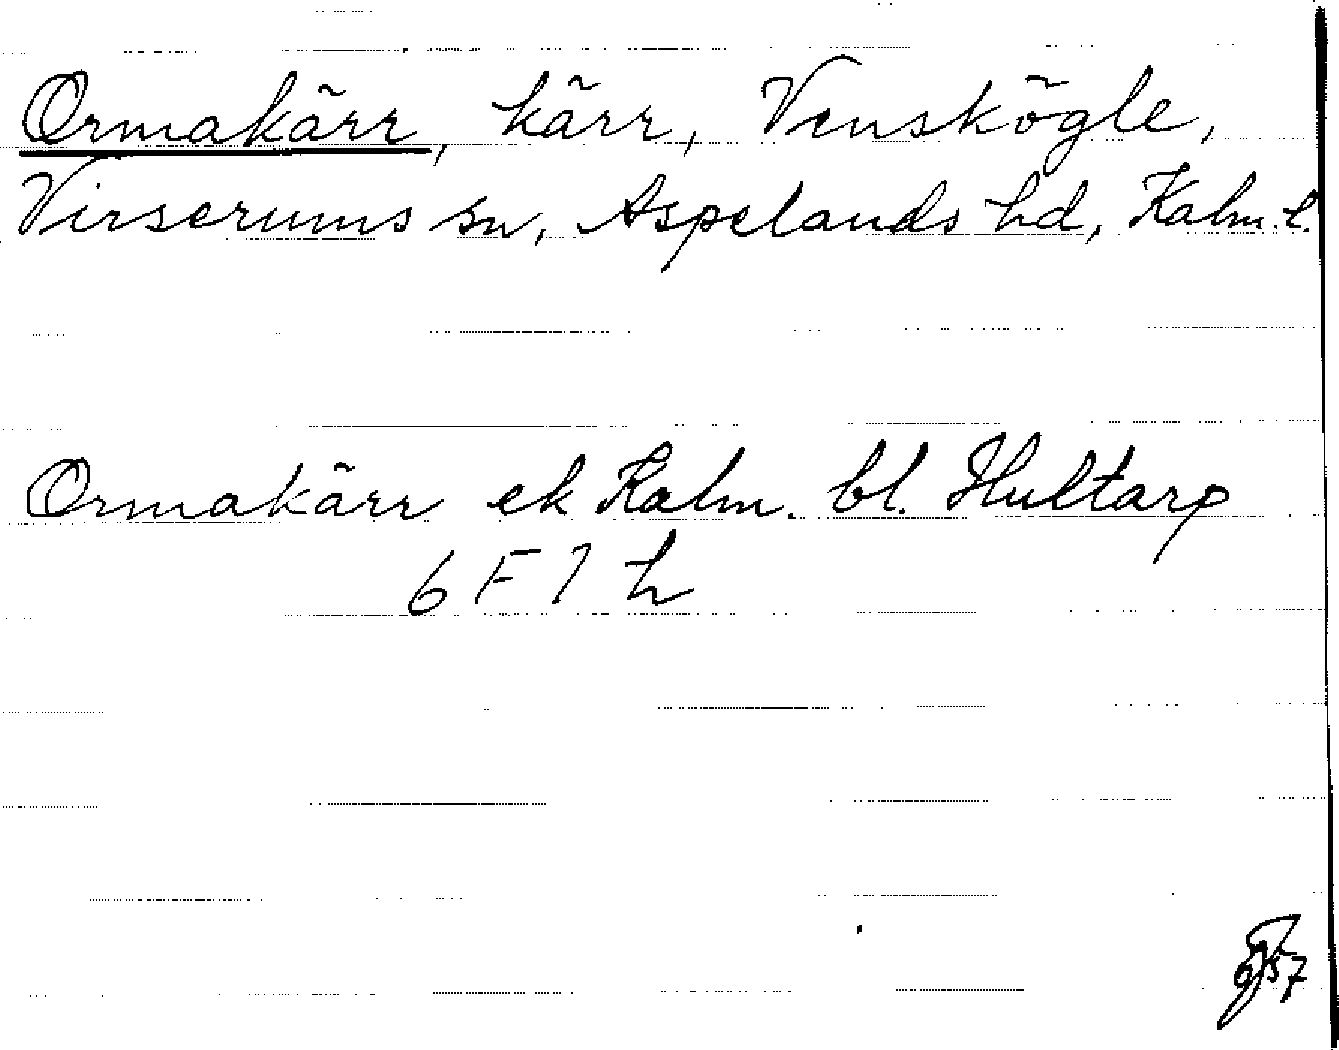 Ormakärr, kärr, Venskögle,
Virserums sn, Aspelands hd, Kalm. l.
Ormakärr ek Kalm. bl. Hultarp
6 F 7 h
57